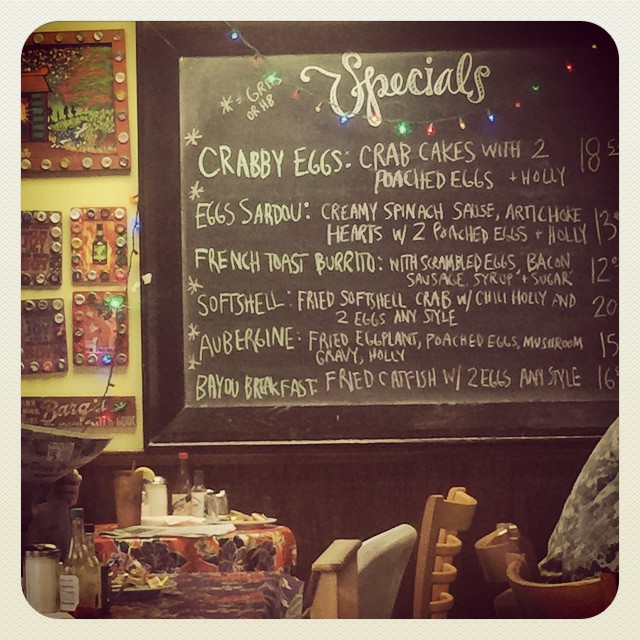 Specials
* = GRITS
OR HB
* CRABBY EGGS: CRAB CAKES WITH 2 18
POACHED EGGS + HOLLY
* EGGS SARDOU: CREAMY SPINACH SAUSE, ARTICHOKE
HEARTS W/ 2 POACHED EGGS + HOLLY 13
FRENCH TOAST BURRITO: WITH SCRAMBLED EGGS, BACON 12
SAUSAGE, SYRUP + SUGAR
* SOFTSHELL: FRIED SOFTSHELL CRAB W/ CHILI HOLLY AND 20
2 EGGS ANY STYLE
* AUBERGINE: FRIED EGGPLANT, POACHED EGGS, MUSHROOM 15
GRAVY, HOLLY
* BAYOU BREAKFAST: FRIED CATFISH W/ 2 EGGS ANY STYLE 16
Barq's